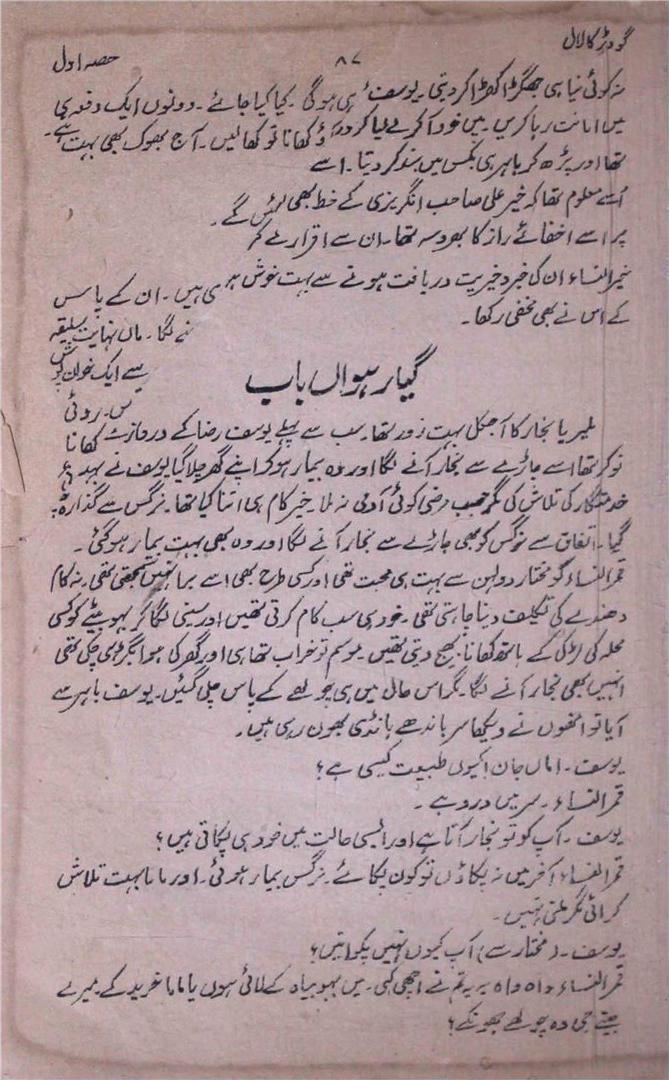 گودڑ کا لال
۸۷
حصہ اول
نہ کوئی نیا ہی جھگڑا کھڑا کر دیتی۔ یوسف ہی ہوگی۔ کیا کیا جائے۔ دونوں ایک دفعہ ہی
میں امانت رہا کریں۔ میں خود آ کر لے لیا کروں کھانا تو کھا لیں۔ آج بھوک بھی بہت ہے۔
تھا اور پڑھ کر باہر ہی بکس میں بند کر دیتا۔ اسے
اُسے معلوم تھا کہ خیر علی صاحب انگریزی کے خط بھی
پر اسے اخفائے راز کا بھروسہ تھا۔ ان سے اقرار لے کر
خیر النساء ان کی خیر و خیریت دریافت ہونے سے بہت خوش ہی ہیں۔ ان کے پاس
کے اس نے بھی مخفی رکھا۔ نے لگا۔ ماں نہایت سلیقہ
سے ایک خوان پوش
گیارہواں باب
س۔ روٹی
ملیریا بخار کا آجکل بہت زور تھا۔ سب سے پہلے یوسف رضا کے دروازے کھانا
نوکر تھا اسے جاڑے سے بخار آنے لگا اور وہ بیمار ہو کر اپنے گھر چلا گیا یوسف نے بہت
خدمتگار کی تلاش کی مگر حسب مرضی کوئی آدمی نہ ملا۔ خیر کام ہی اتنا کیا تھا۔ نرگس سے گذارہ
گیا۔ اتفاق سے نرگس کو بھی جاڑے سے بخار آنے لگا اور وہ بھی بہت بیمار ہوگئی۔
قمر النساء کو مختار دولہن سے بہت ہی محبت تھی اور کسی طرح بھی اسے برا نہیں سمجھتی تھی۔ نہ کام
دھندے کی تکلیف دینا چاہتی تھی۔ خود ہی سب کام کرتی تھیں اور سینی لگا کر بہو بیٹے کو کسی
محلہ کی لڑکی کے ہاتھ کھانا بھیج دیتی تھیں۔ موسم تو خراب تھا ہی اور گھر کی ہوا بگڑ ہی چکی تھی
انہیں بھی بخار آنے لگا۔ مگر اس حال میں ہی چولھے کے پاس چلی گئیں۔ یوسف باہر سے
آیا تو انھوں نے دیکھا سر باندھے ہانڈی بھون رہی ہیں۔
یوسف۔ اماں جان! کیوں طبیعت کیسی ہے؟
قمر النساء۔ سر میں درد ہے۔
یوسف۔ آپ کو تو بخار آتا ہے اور ایسی حالت میں خود ہی پکاتی ہیں؟
قمر النساء آخر میں نہ پکاؤں تو کون پکائے۔ نرگس بیمار ہو گئی۔ اور ماما بہت تلاش
کرائی مگر ملتی نہیں۔
یوسف۔ (مختار سے) آپ کیوں نہیں پکواتیں؟
قمر النساء واہ واہ یہ تم نے اچھی کہی۔ میں بہو بیاہ کے لائی ہوں یا ماما خرید کے۔ میرے
جیتے جی وہ چولھے جھونکے؟